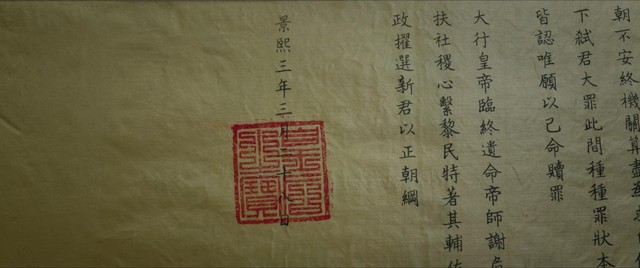 朝不安終機關算盡
下弒君大罪此間種種罪狀本
皆認唯願以己命贖罪
大行皇帝臨終遺命帝師謝危
扶社稷心繫黎民特著其輔佐
政擢選新君以正朝綱
景熙三年三月二十八日